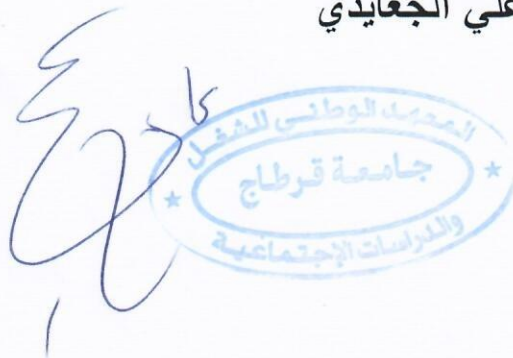 علي الجعايدي
المعهد الوطني للشغل
جامعة قرطاج
والدراسات الإجتماعية